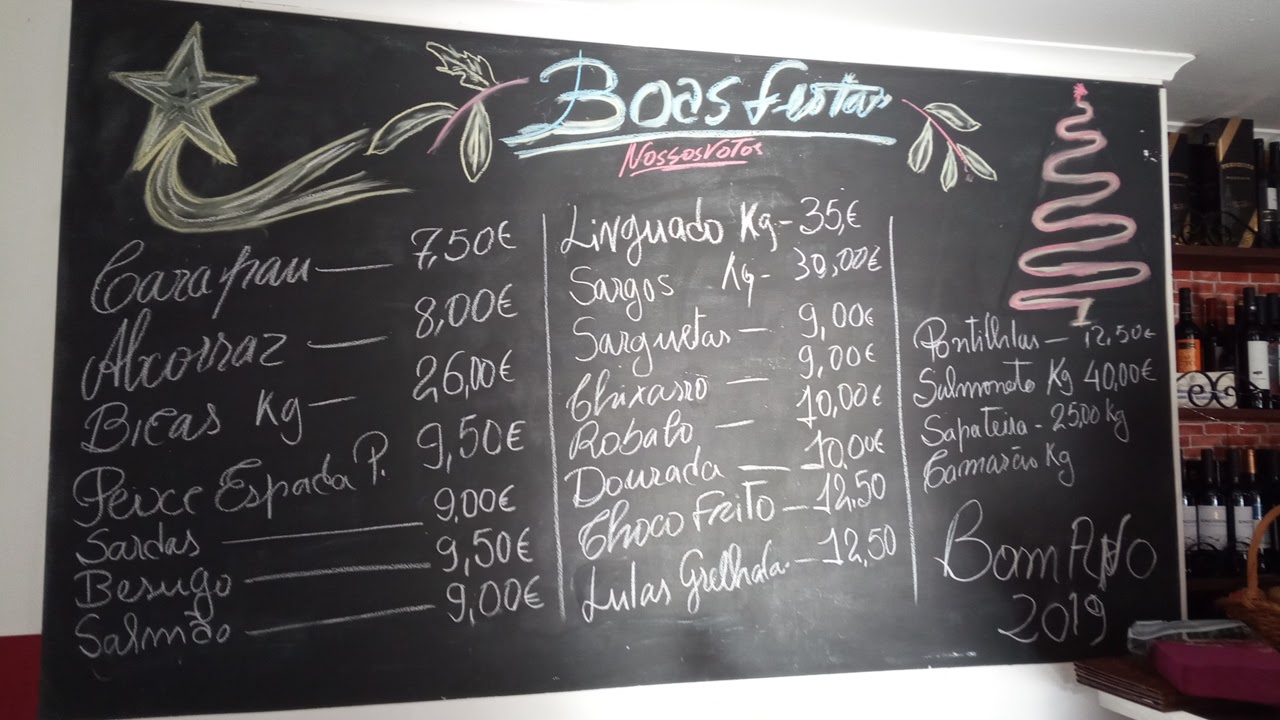 Boas Festas
Nossos votos
Carapau — 7,50€
Alcorraz — 8,00€
Bicas Kg — 26,00€
Peixe Espada P. 9,50€
Sardas — 9,00€
Besugo — 9,50€
Salmão — 9,00€
Linguado Kg - 35,€
Sargos Kg - 30,00€
Sarguetas — 9,00€
Chixarro — 9,00€
Robalo — 10,00€
Dourada — 10,00€
Choco Frito — 12,50
Lulas Grelhada. — 12,50
Pontilhas — 12,50€
Salmonete Kg 40,00€
Sapateira - 25,00 kg
Camarão Kg
Bom Ano
2019